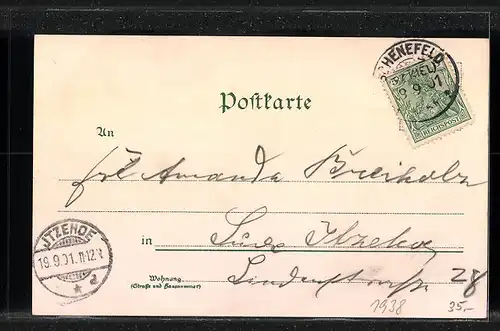 HENEFELD
19.9.01
REICHSPOST
Postkarte
An
Frl Amanda Breiholz
ITZEHOE
19.9.01.11-12.V
* d
in Itzehoe
Wohnung
(Straße und Hausnummer)
Lindenstrasse 28
1938 35,-